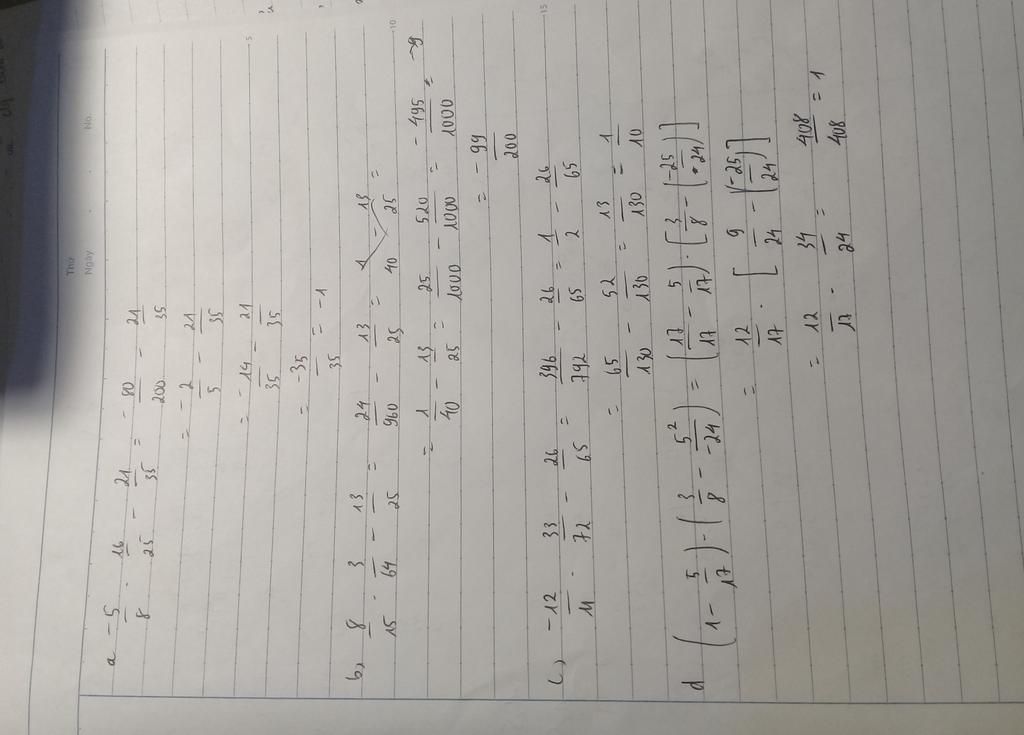 Thứ
Ngày No.
a -5/8 . 16/25 - 21/35 = -80/200 - 21/35
= -2/5 - 21/35
= -14/35 - 21/35
5
= -35/35 = -1
b, 8/15 . 3/64 - 13/25 = 24/960 - 13/25 = 1/40 - 13/25 =
10
= 1/40 - 13/25 = 25/1000 - 520/1000 = -495/1000 =
= -99/200
c, -12/11 . 33/72 - 26/65 = 396/792 - 26/65 = 1/2 - 26/65
15
= 65/130 - 52/130 = 13/130 = 1/10
d (1 - 5/17) . (3/8 - 5²/-24) = (17/17 - 5/17) . [3/8 - (-25/24)]
= 12/17 . [9/24 - (-25/24)]
= 12/17 . 34/24 = 408/408 = 1